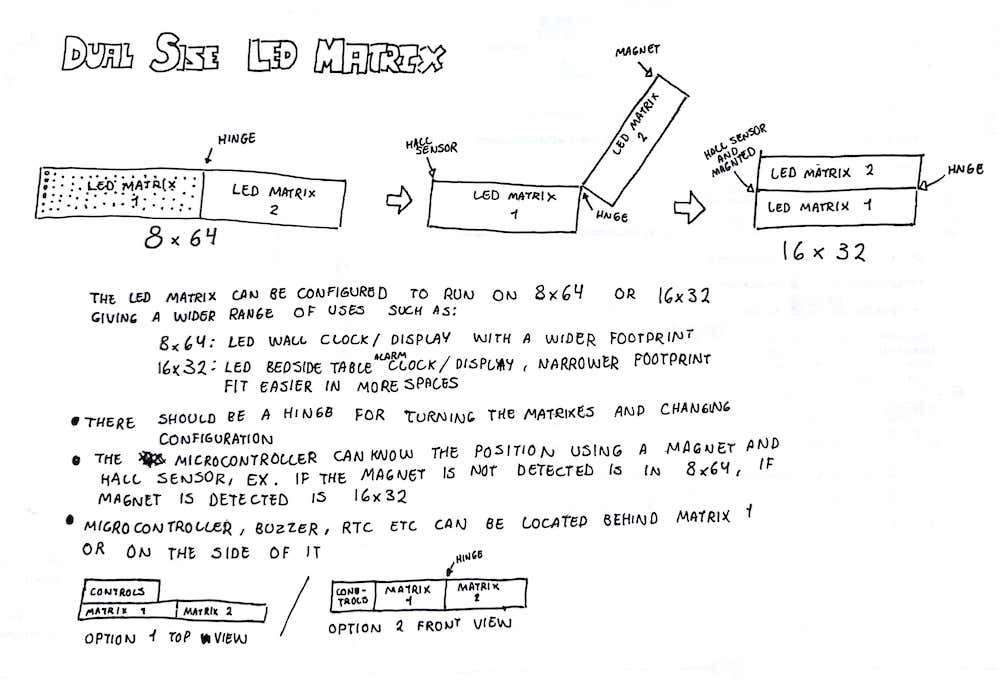 DUAL SISE LED MATRIX
MAGNET
HINGE
HALL
SENSOR
LED MATRIX
1
LED MATRIX
2
LED MATRIX
1
LED MATRIX
2
HNGE
HALL SENSOR
AND
MAGNTED
LED MATRIX 2
LED MATRIX 1
HNGE
8x64
16x32
THE LED MATRIX CAN BE CONFIGURED TO RUN ON 8x64 OR 16x32
GIVING A WIDER RANGE OF USES SUCH AS:
8x64: LED WALL CLOCK/DISPLAY WITH A WIDER FOOTPRINT
16x32: LED BEDSIDE TABLE ALARM CLOCK/DISPLAY, NARROWER FOOTPRINT
FIT EASIER IN MORE SPACES
• THERE SHOULD BE A HINGE FOR TURNING THE MATRIXES AND CHANGING
CONFIGURATION
• THE MICROCONTROLLER CAN KNOW THE POSITION USING A MAGNET AND
HALL SENSOR, EX. IF THE MAGNET IS NOT DETECTED IS IN 8x64, IF
MAGNET IS DETECTED IS 16x32
• MICROCONTROLLER, BUZZER, RTC ETC CAN BE LOCATED BEHIND MATRIX 1
OR ON THE SIDE OF IT
HINGE
CONTROLS
MATRIX 1 MATRIX 2
OPTION 1 TOP VIEW
CONE-
TROLS
MATRIX
1
MATRIX
2
OPTION 2 FRONT VIEW